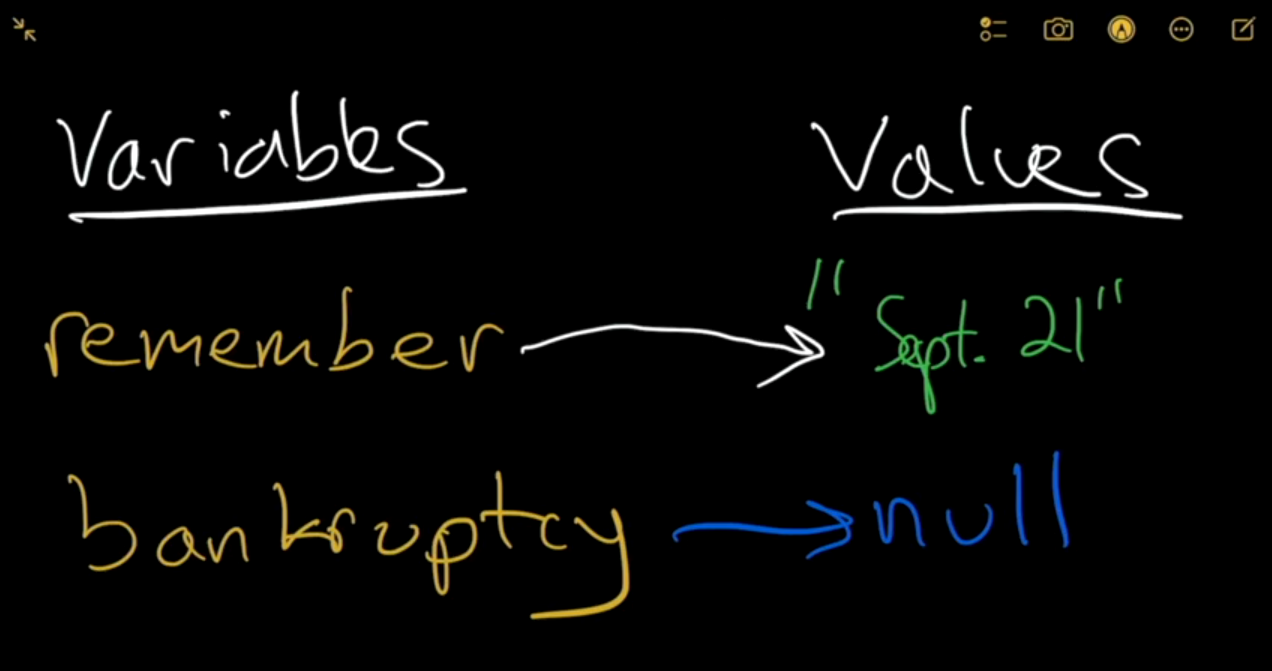 Variables Values
remember "Sept. 21"
bankruptcy null